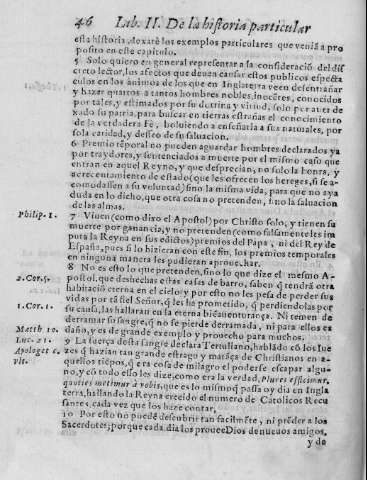 46 Lib. II. De la historia particular
esta historia, dexarè los exemplos particulares que veniã a pro
posito en este capitulo.
5 Solo quiero en general representar a la consideraciõ del dis
creto lector, lus afectos que deuen causar estos publicos especta
culos en los animos de los que en Inglaterra veen desentrañar
y hazer quartos a tantos hombres nobles, inocẽres, conocidos
por tales, y estimados por su dotrina y virtud, solo por auer de
xado su patria, para buscar en tierras estrañas el conocimiento
de la verdadera Fè, boluiendo a enseñarla a sus naturales, por
sola caridad, y desseo de su saluacion.
6 Premio tẽporal no pueden aguardar hombres declarados ya
por traydores, y sentenciados a muerte por el mismo caso que
entran en aquel Reyno, y que desprecian, no solo la honra, y
acrecentamiento de estado (que les ofrecen los hereges, si se a-
comodassen a su voluntad) sino la misma vida, para que no aya
duda en lo dicho, que otra cosa no pretenden, sino la saluacion
de las almas.
Philip. 1. 7 Viuen (como dixo el Apostol) por Christo solo, y tienen su
muerte por ganancia, y no pretenden (como falsamente les im
puta la Reyna en sus edictos) premios del Papa, ni del Rey de
España, pues si lo hizieran con este fin, los premios temporales
en ninguna manera les pudieran aprouechar.
8 No es esto lo que pretenden, sino lo que dize el mesmo A-
2. Cor. 5. postol, que deshechas estas casas de barro, saben q̃ tendrà otra
habitaciõ eterna en el cielo: y por esto no les pesa de perder sus
vidas por tã fiel Señor, q̃ les ha prometido, q̃ perdiendolas por
1. Cor. 1. su causa, las hallaran en la eterna biẽauenturãça. Ni temen de
derramar su sangre, q̃ no se pierde derramada, ni para ellos es
Matth. 10. daño, y es de grande exemplo y prouecho para muchos.
Luc. 21. 9 La fuerça desta sangre declara Tertuliano, hablãdo cõ los Iue
Apologet. c. zes q̃ hazian tan grande estrago y matãça de Christianos en a-
vlt. quellos tiẽpos, q̃ era cosa de milagro el poderse escapar algu-
no, y cõ todo esso les dize, como era la verdad, Plures efficimur,
quoties metimur à vobis, que es lo mismo q̃ passa oy dia en Ingla
terra, hallando la Reyna crecido el numero de Catolicos Recu
santes, cada vez que los haze contar.
10 Por esto no puede destruirlos tan facilmẽte, ni prẽder a los
Sacerdotes; porque cada dia los prouee Dios de nueuos amigos,
y de